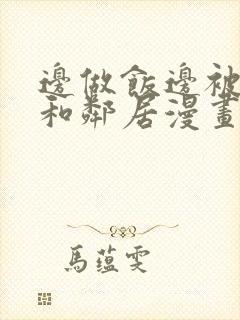 邊做飯邊被
和鄰居漫畫
馬蘊雯